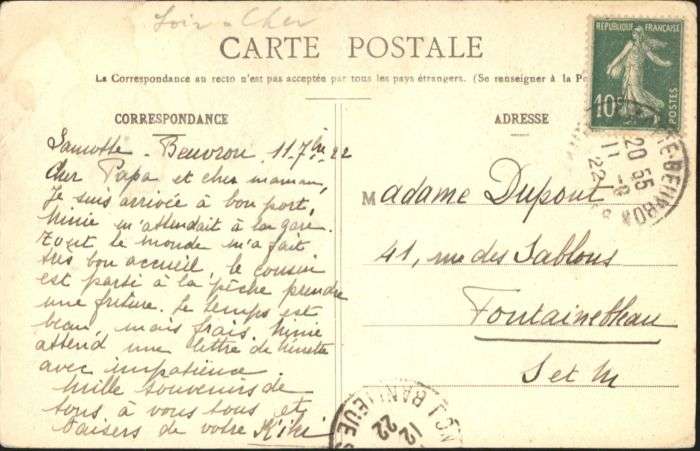 Loir & Cher
CARTE POSTALE
La Correspondance au recto n'est pas acceptée par tous les pays étrangers. (Se renseigner à la Po
CORRESPONDANCE
Lamotte-Beuvron, 11-7bre 22
Cher Papa et cher maman,
Je suis arrivée à bon port,
Ninie m'attendait à la gare.
Tout le monde m'a fait
très bon accueil. Le cousin
est parti à la pêche prendre
une friture. Le temps est
beau, mais frais. Ninie
attend une lettre de Ninette
avec impatience.
Mille souvenirs de
tous à vous tous et
baisers de votre Kiki
ADRESSE
Madame Dupont
41, rue des Sablons
Fontainebleau
S et M
RÉPUBLIQUE FRANÇAISE
10c
POSTES
E-BEUVRON
20 55
11 -9
22
BANLIEUE
12
22